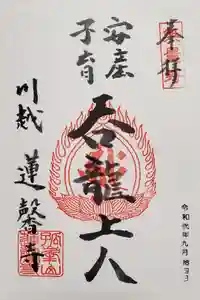 奉拝
安産
子育
呑龍上人
川越
蓮馨寺
令和元年九月